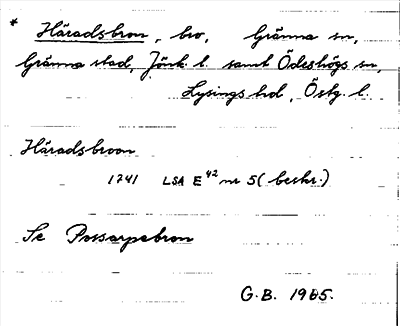 * Häradsbron, bro, Gränna sn,
Gränna stad, Jönk. l. samt Ödeshögs sn,
Lysings hd, Östg. l.
Häradsbroon
1741 LSA E42 nr 5 (beskr.)
Se Possarpebron
G.B. 1965.